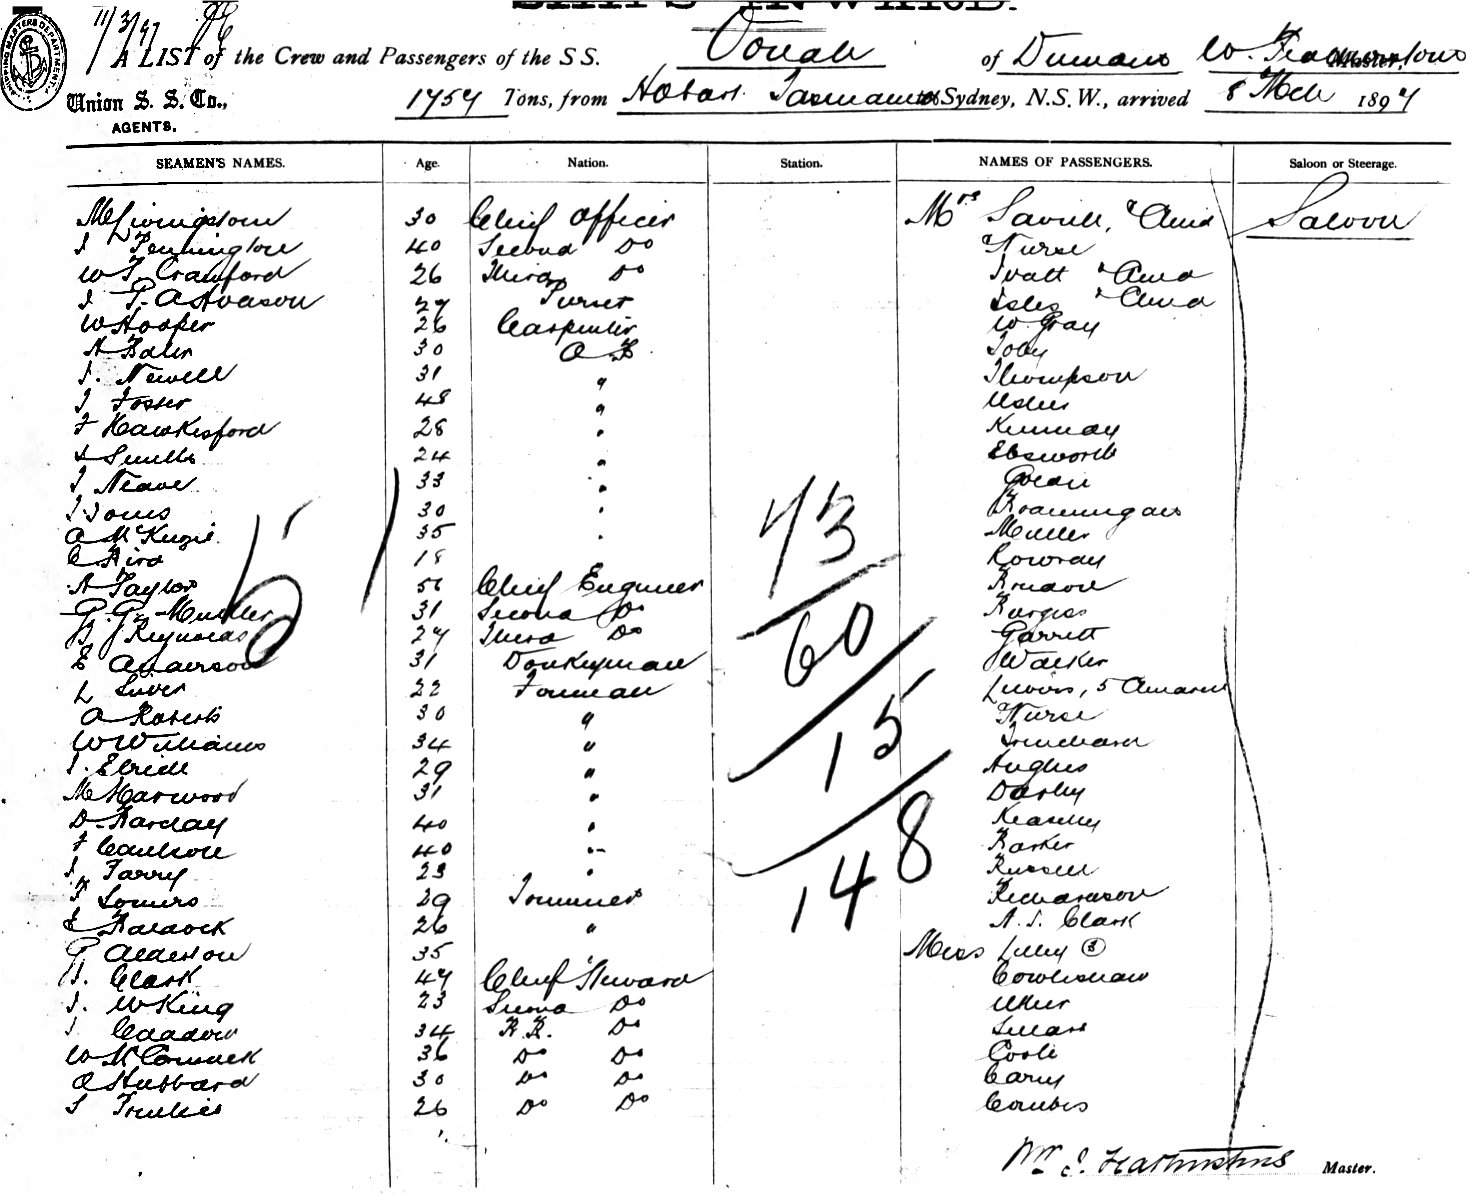 11/3/97
SHIPPING MASTERS DEPARTMENT
A LIST of the Crew and Passengers of the SS. Oonah of Dunedin W. Featherstone Master,
Union S. S. Co.,
AGENTS.
1757 Tons, from Hobart Tasmania to Sydney, N.S.W., arrived 8 Mch 1897
SEAMEN'S NAMES. Age. Nation. Station. NAMES OF PASSENGERS. Saloon or Steerage.
M Livingstone 30 Chief Officer Mrs Savill, & Child Saloon
J Pennington 40 Second Do Nurse
W F. Crawford 26 Third Do & Child
J P. 27 Purser Isles & Child
W Hooper 26 Carpenter W. Gray
30 A B Toby
J. Newell 31 " Thompson
J Foster 48 " Usher
F Hawkesford 28 " Kennedy
24 " Ebsworth
J Neave 33 "
J Jones 30 "
A McKenzie 35 " Muller
C Bird 18
A Taylor 56 Chief Engineer
P. G. Mueller 31 Second Do Burgess
J Reynolds 27 Third Do Garrett
E Anderson 31 Donkeyman Walker
L 22 Foreman 5 Children
A Roberts 30 " Nurse
W Williams 34 "
J. 29 " Hughes
M Harwood 31 " Darby
D. Barclay 40 " Kearley
F 40 " Barker
J. Farry 23 " Russell
F Somers 29 Trimmer Richardson
E Baldock 26 " A. J. Clark
P Alderton 35 Miss Lilley (3)
H. Clark 47 Chief Steward Cowlishaw
J. McKing 23 Second Do Usher
J 34 B.R. Do
W McCormack 36 Do Do Coote
A Hubbard 30 Do Do Carey
S 26 Do Do Combes
51
73
60
15
148
Wm J. Featherstone Master.